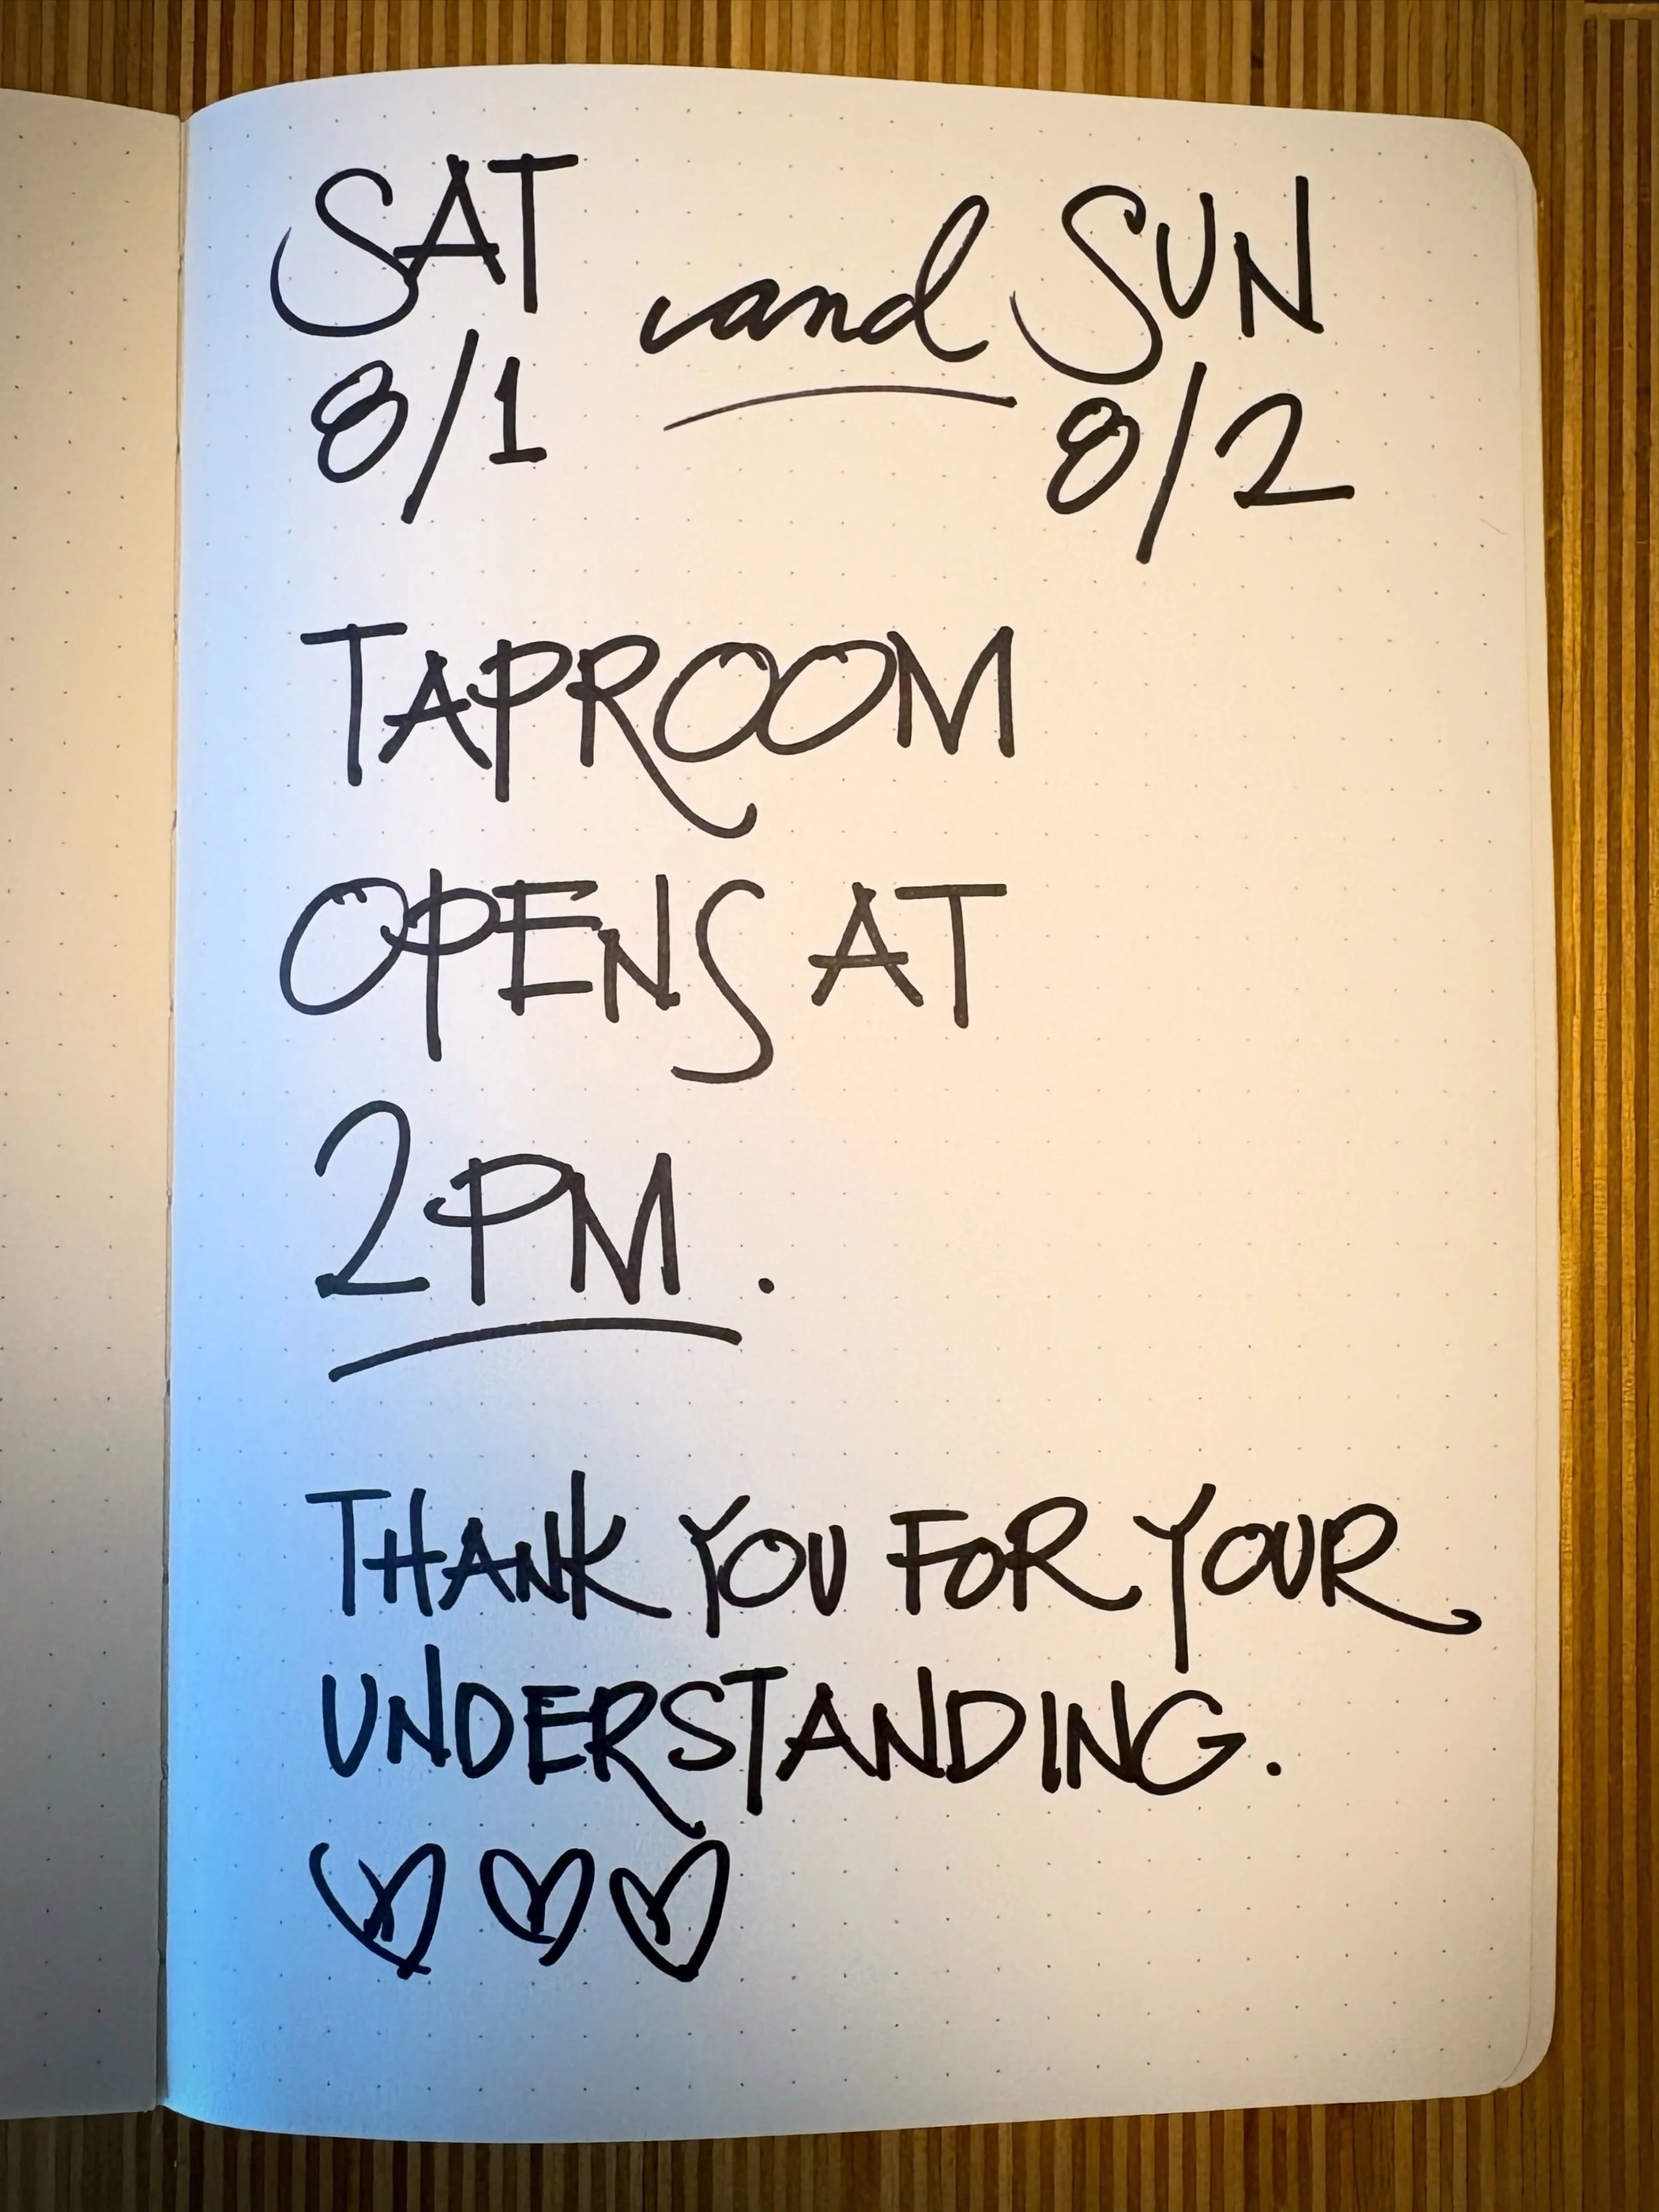 SAT and SUN
8/1 8/2
TAPROOM
OPENS AT
2PM.
THANK YOU FOR YOUR
UNDERSTANDING.
♡♡♡